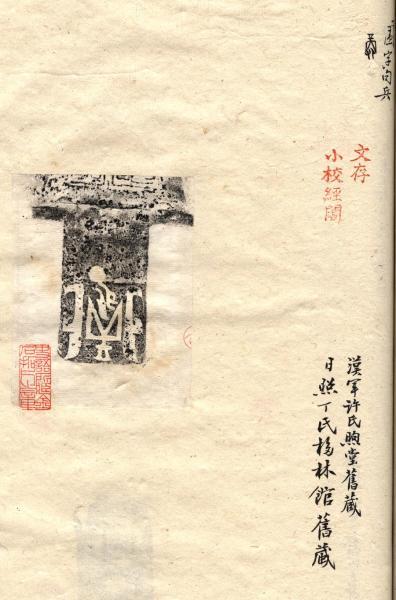 字句兵
文存
小校經閣
漢軍許氏煦堂舊藏
日照丁氏栘林館舊藏